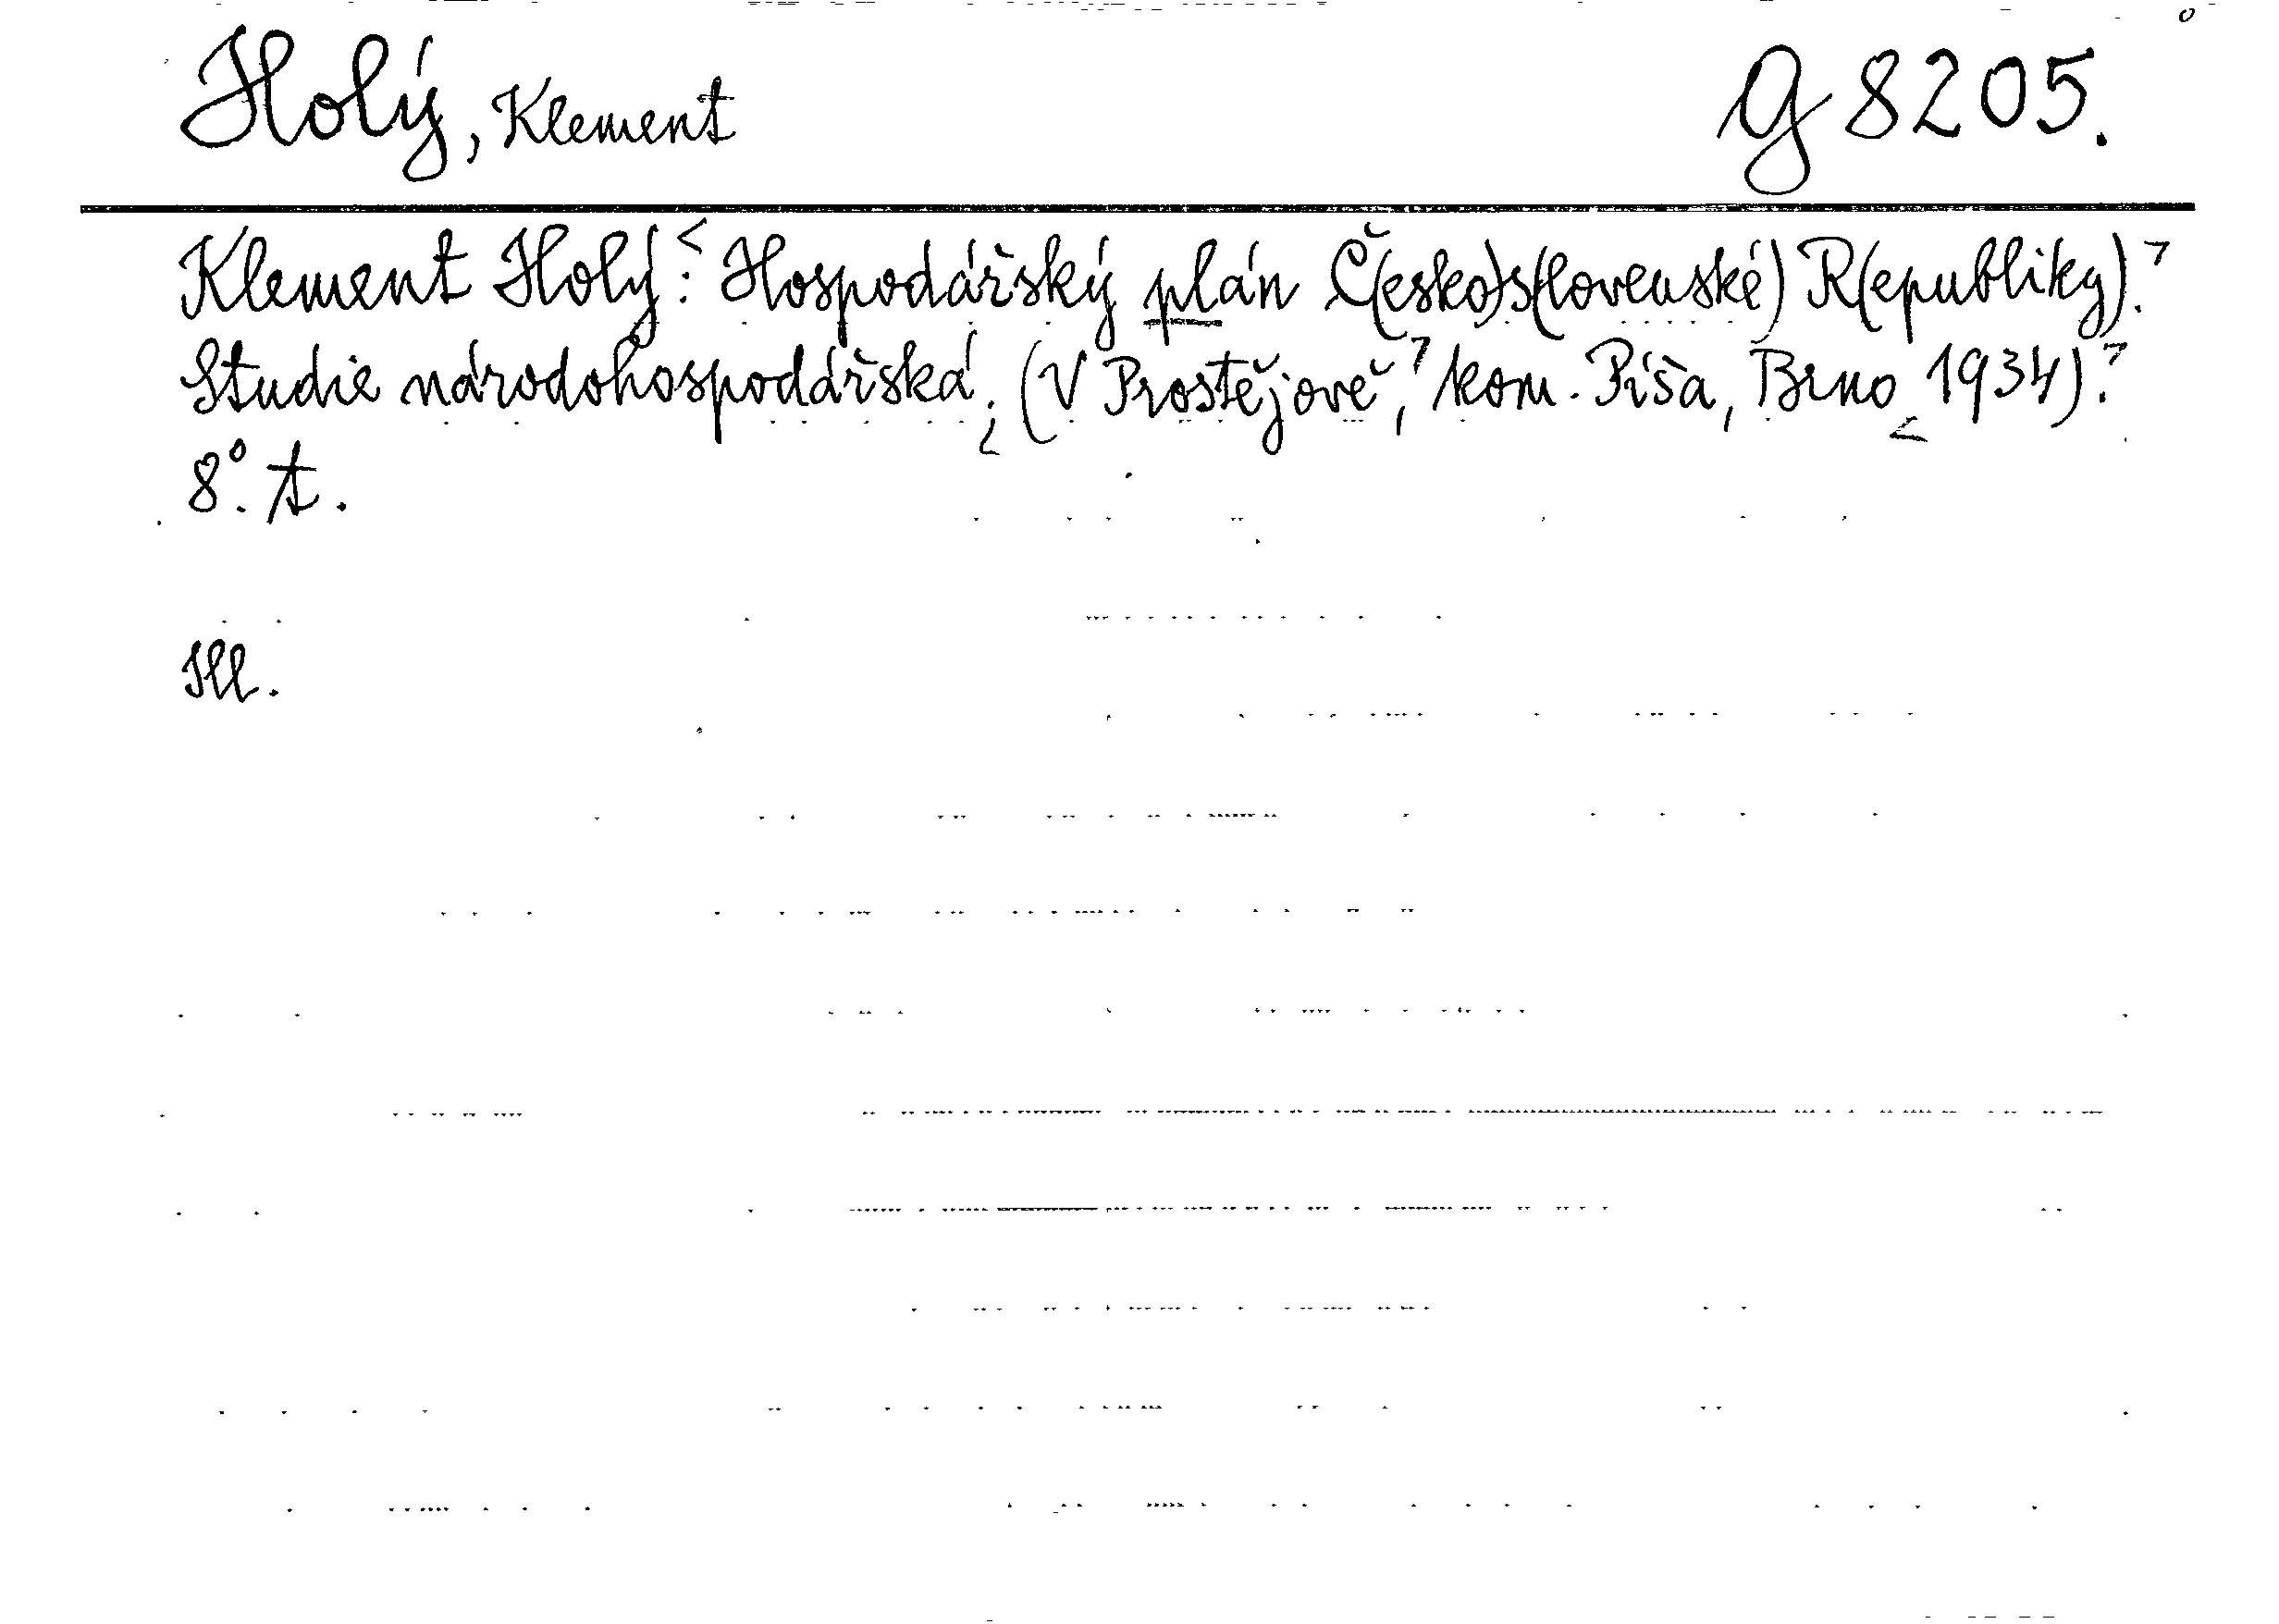 Holý, Klement
G 8205.
Klement Holý: Hospodářský plán Č(esko)s(lovenské) R(epubliky).
Studie národohospodářská. (V Prostějově, kom. Píša, Brno 1934).
8°. t.
Ill.